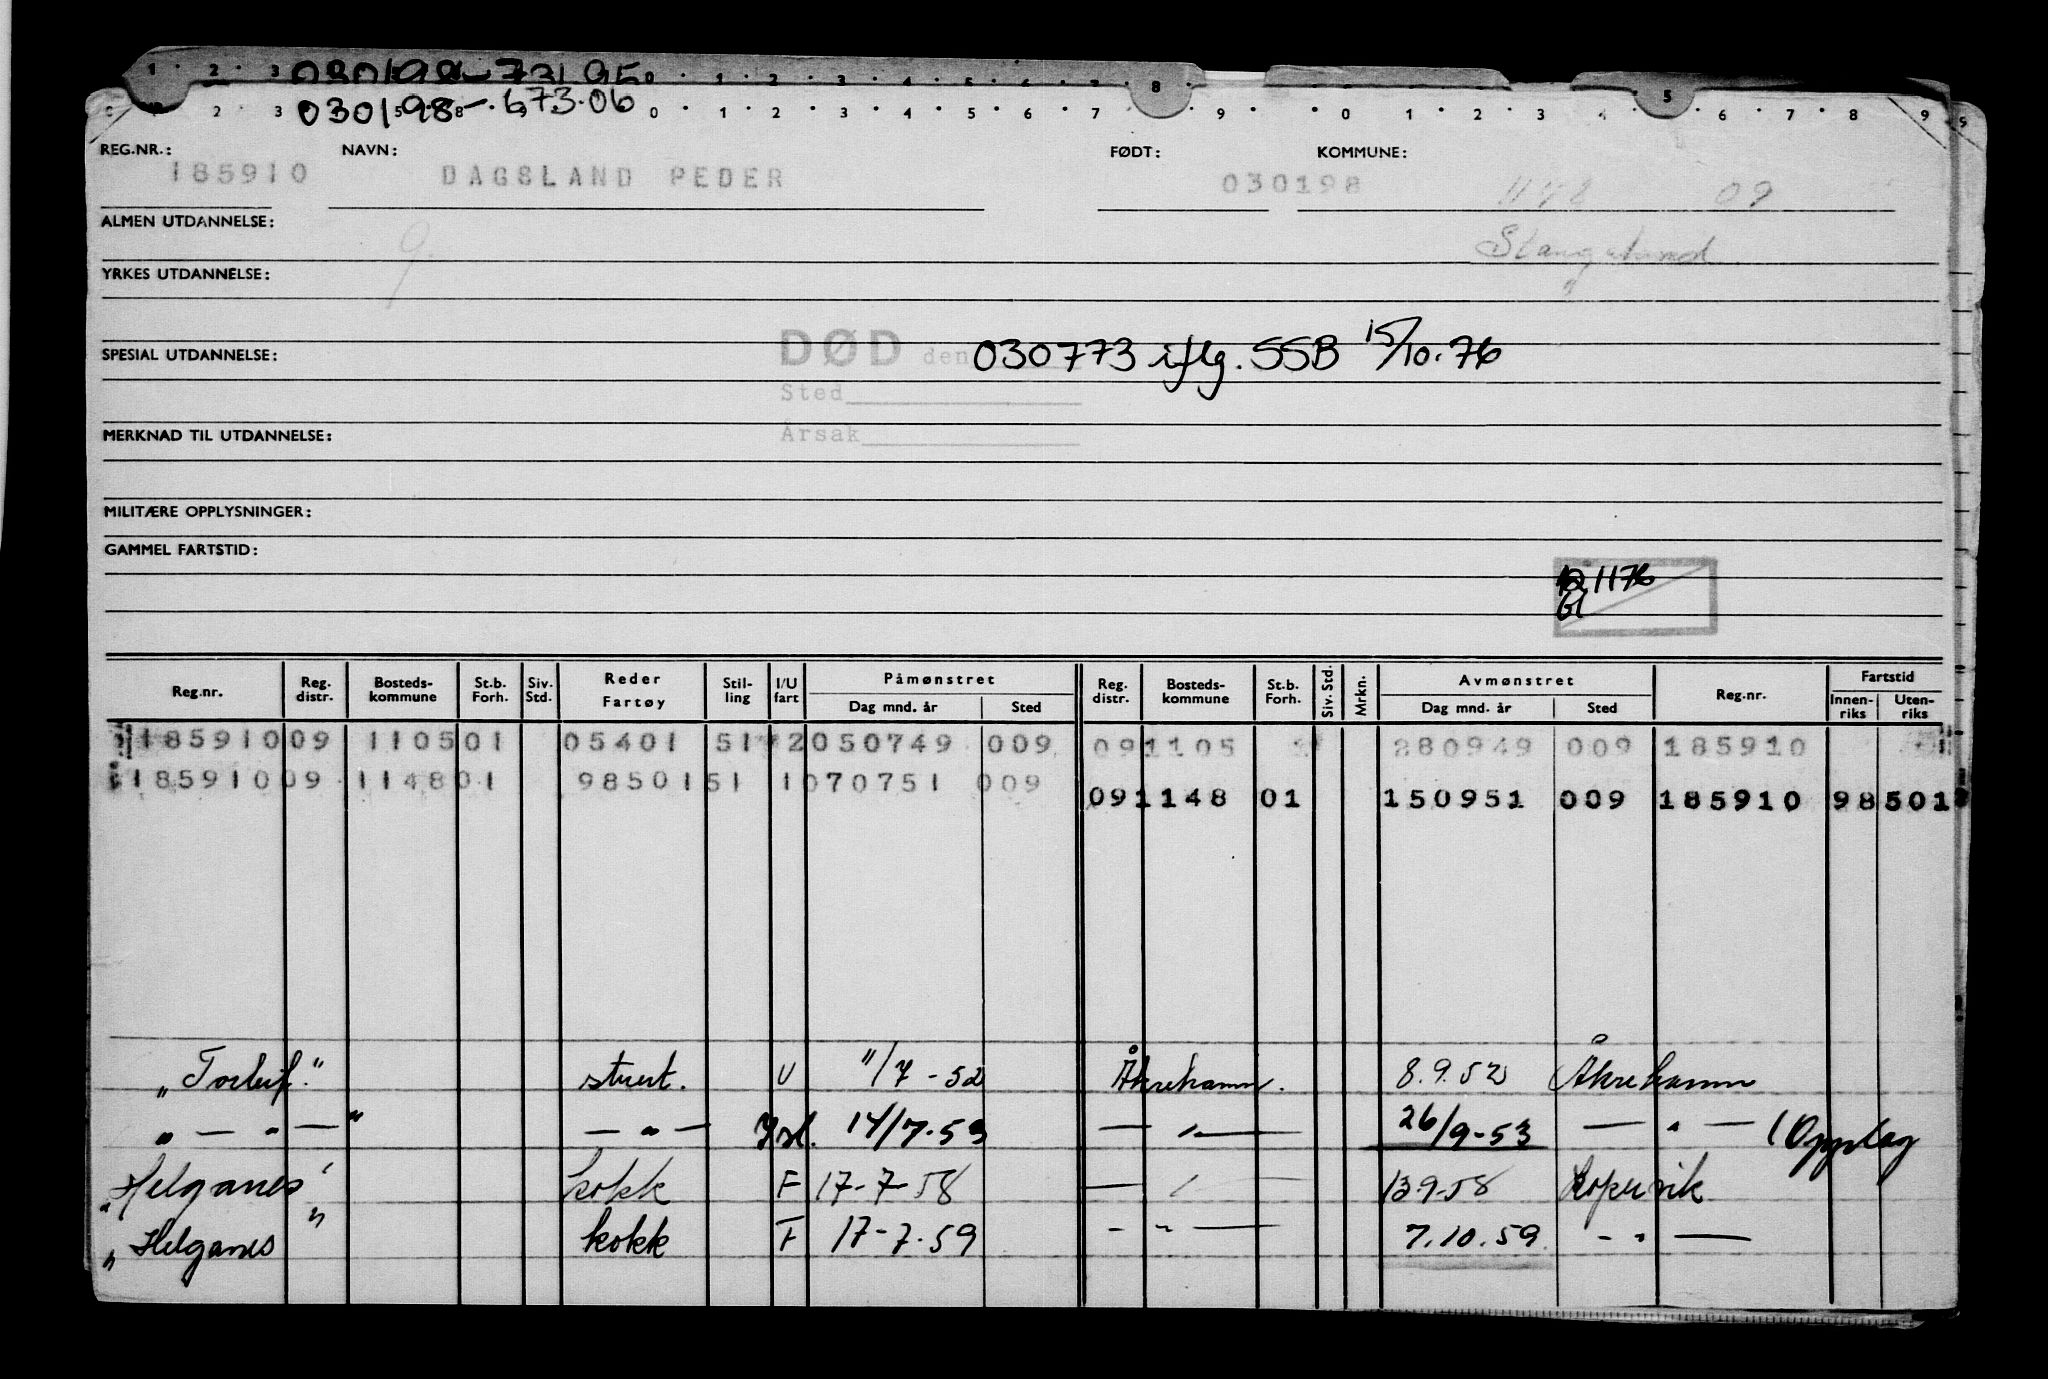 030198-73195
030198-.673.06
REG.NR.: 185910 NAVN: DAGSLAND PEDER FØDT: 030198 KOMMUNE: 1148 09
ALMEN UTDANNELSE: Stangeland
YRKES UTDANNELSE:
SPESIAL UTDANNELSE: DØD den 030773 iflg. SSB 15/10.76
Sted
MERKNAD TIL UTDANNELSE: Årsak
MILITÆRE OPPLYSNINGER:
GAMMEL FARTSTID:
1176
Reg.nr. Reg. distr. Bosteds-kommune St.b. Forh. Siv. Std. Reder Fartøy Stil-ling I/U fart Påmønstret Dag mnd. år Sted Reg. distr. Bosteds-kommune St.b. Forh. Siv. Std. Mrkn. Avmønstret Dag mnd. år Sted Reg.nr. Fartstid Innen-riks Uten-riks
185910 09 1105 01 05401 51 2 050749 009 09 1105 280949 009 185910
185910 09 1148 01 98501 51 1 070751 009
09 1148 01 150951 009 185910 98501
"Torleif." stuert. U 11/7-52 Åkrehamn. 8.9.52 Åkrehamn
" — " — " — " — Isl. 14/7-53 — " — 26/9-53 — " — (Opplag
"Helganes" kokk F 17-7-58 — " — 13-9-58 Kopervik
"Helganes" kokk F 17-7.59 - " — 7.10.59 - " —